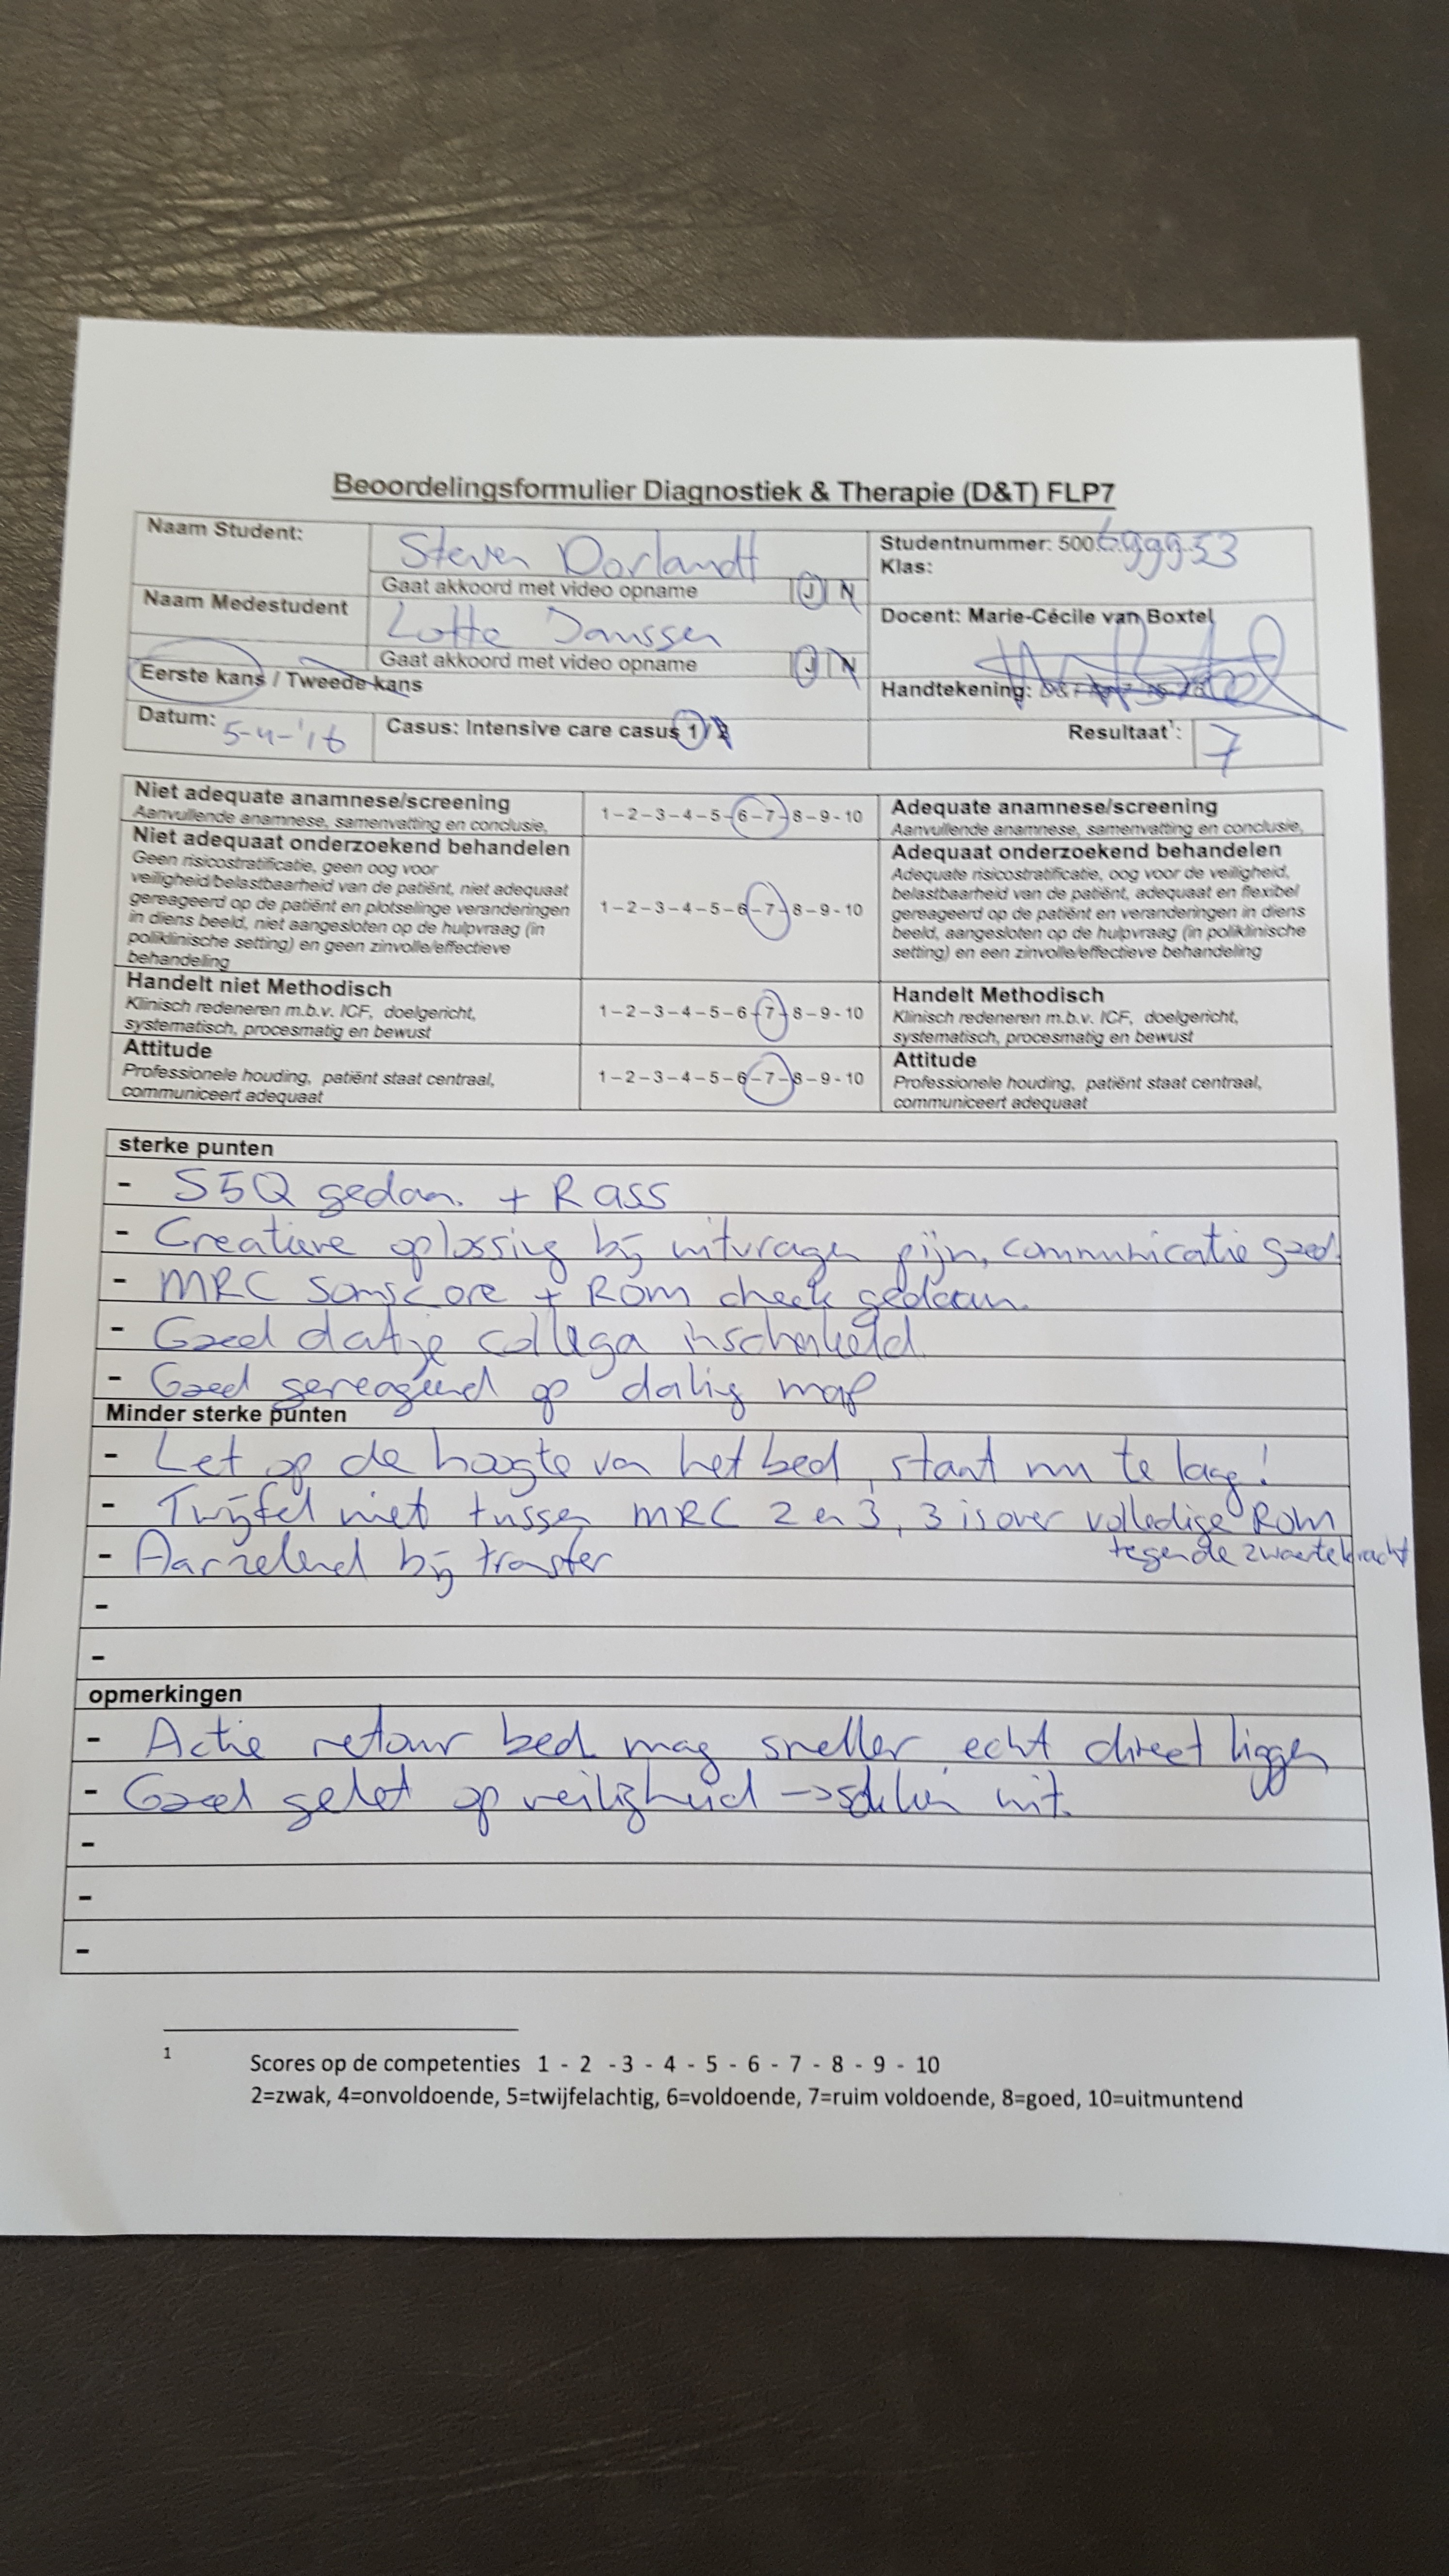 Beoordelingsformulier Diagnostiek & Therapie (D&T) FLP7
Naam Student:
Steven Dorlandt
Studentnummer: 500699953
Klas:
Gaat akkoord met video opname J N
Naam Medestudent
Lotte Janssen
Docent: Marie-Cécile van Boxtel
Gaat akkoord met video opname J N
Eerste kans / Tweede kans
Handtekening:
Datum: 5-4-'16
Casus: Intensive care casus 1/2
Resultaat¹: 7
Niet adequate anamnese/screening
Aanvullende anamnese, samenvatting en conclusie,
1 – 2 – 3 – 4 – 5 – 6 – 7 – 8 – 9 - 10
Adequate anamnese/screening
Aanvullende anamnese, samenvatting en conclusie,
Niet adequaat onderzoekend behandelen
Geen risicostratificatie, geen oog voor
veiligheid/belastbaarheid van de patiënt, niet adequaat
gereageerd op de patiënt en plotselinge veranderingen
in diens beeld, niet aangesloten op de hulpvraag (in
poliklinische setting) en geen zinvolle/effectieve
behandeling
1 – 2 – 3 – 4 – 5 – 6 – 7 – 8 – 9 - 10
Adequaat onderzoekend behandelen
Adequate risicostratificatie, oog voor de veiligheid,
belastbaarheid van de patiënt, adequaat en flexibel
gereageerd op de patiënt en veranderingen in diens
beeld, aangesloten op de hulpvraag (in poliklinische
setting) en een zinvolle/effectieve behandeling
Handelt niet Methodisch
Klinisch redeneren m.b.v. ICF, doelgericht,
systematisch, procesmatig en bewust
1 – 2 – 3 – 4 – 5 – 6 – 7 – 8 – 9 - 10
Handelt Methodisch
Klinisch redeneren m.b.v. ICF, doelgericht,
systematisch, procesmatig en bewust
Attitude
Professionele houding, patiënt staat centraal,
communiceert adequaat
1 – 2 – 3 – 4 – 5 – 6 – 7 – 8 – 9 - 10
Attitude
Professionele houding, patiënt staat centraal,
communiceert adequaat
sterke punten
- S5Q gedaan. + Rass
- Creatieve oplossing bij uitvragen pijn, communicatie goed.
- MRC somscore + ROM check gedaan.
- Goed dat je collega inschakeld.
- Goed gereageerd op daling map
Minder sterke punten
- Let op de hoogte van het bed, staat nu te laag!
- Twijfel niet tussen MRC 2 en 3, 3 is over volledige ROM
tegen de zwaartekracht
- Aarzelend bij transfer
-
-
opmerkingen
- Actie retour bed mag sneller, echt direct liggen
- Goed gelet op veiligheid → uit.
-
-
-
1
Scores op de competenties 1 - 2 - 3 - 4 - 5 - 6 - 7 - 8 - 9 - 10
2=zwak, 4=onvoldoende, 5=twijfelachtig, 6=voldoende, 7=ruim voldoende, 8=goed, 10=uitmuntend